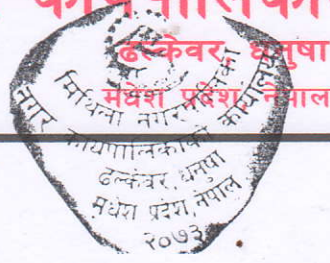 कार्यपालिका
ढल्केवर, धनुषा
मधेश प्रदेश, नेपाल
मिथिला नगरपालिका
नगर कार्यपालिकाको कार्यालय
ढल्केवर, धनुषा
मधेश प्रदेश, नेपाल
२०७३